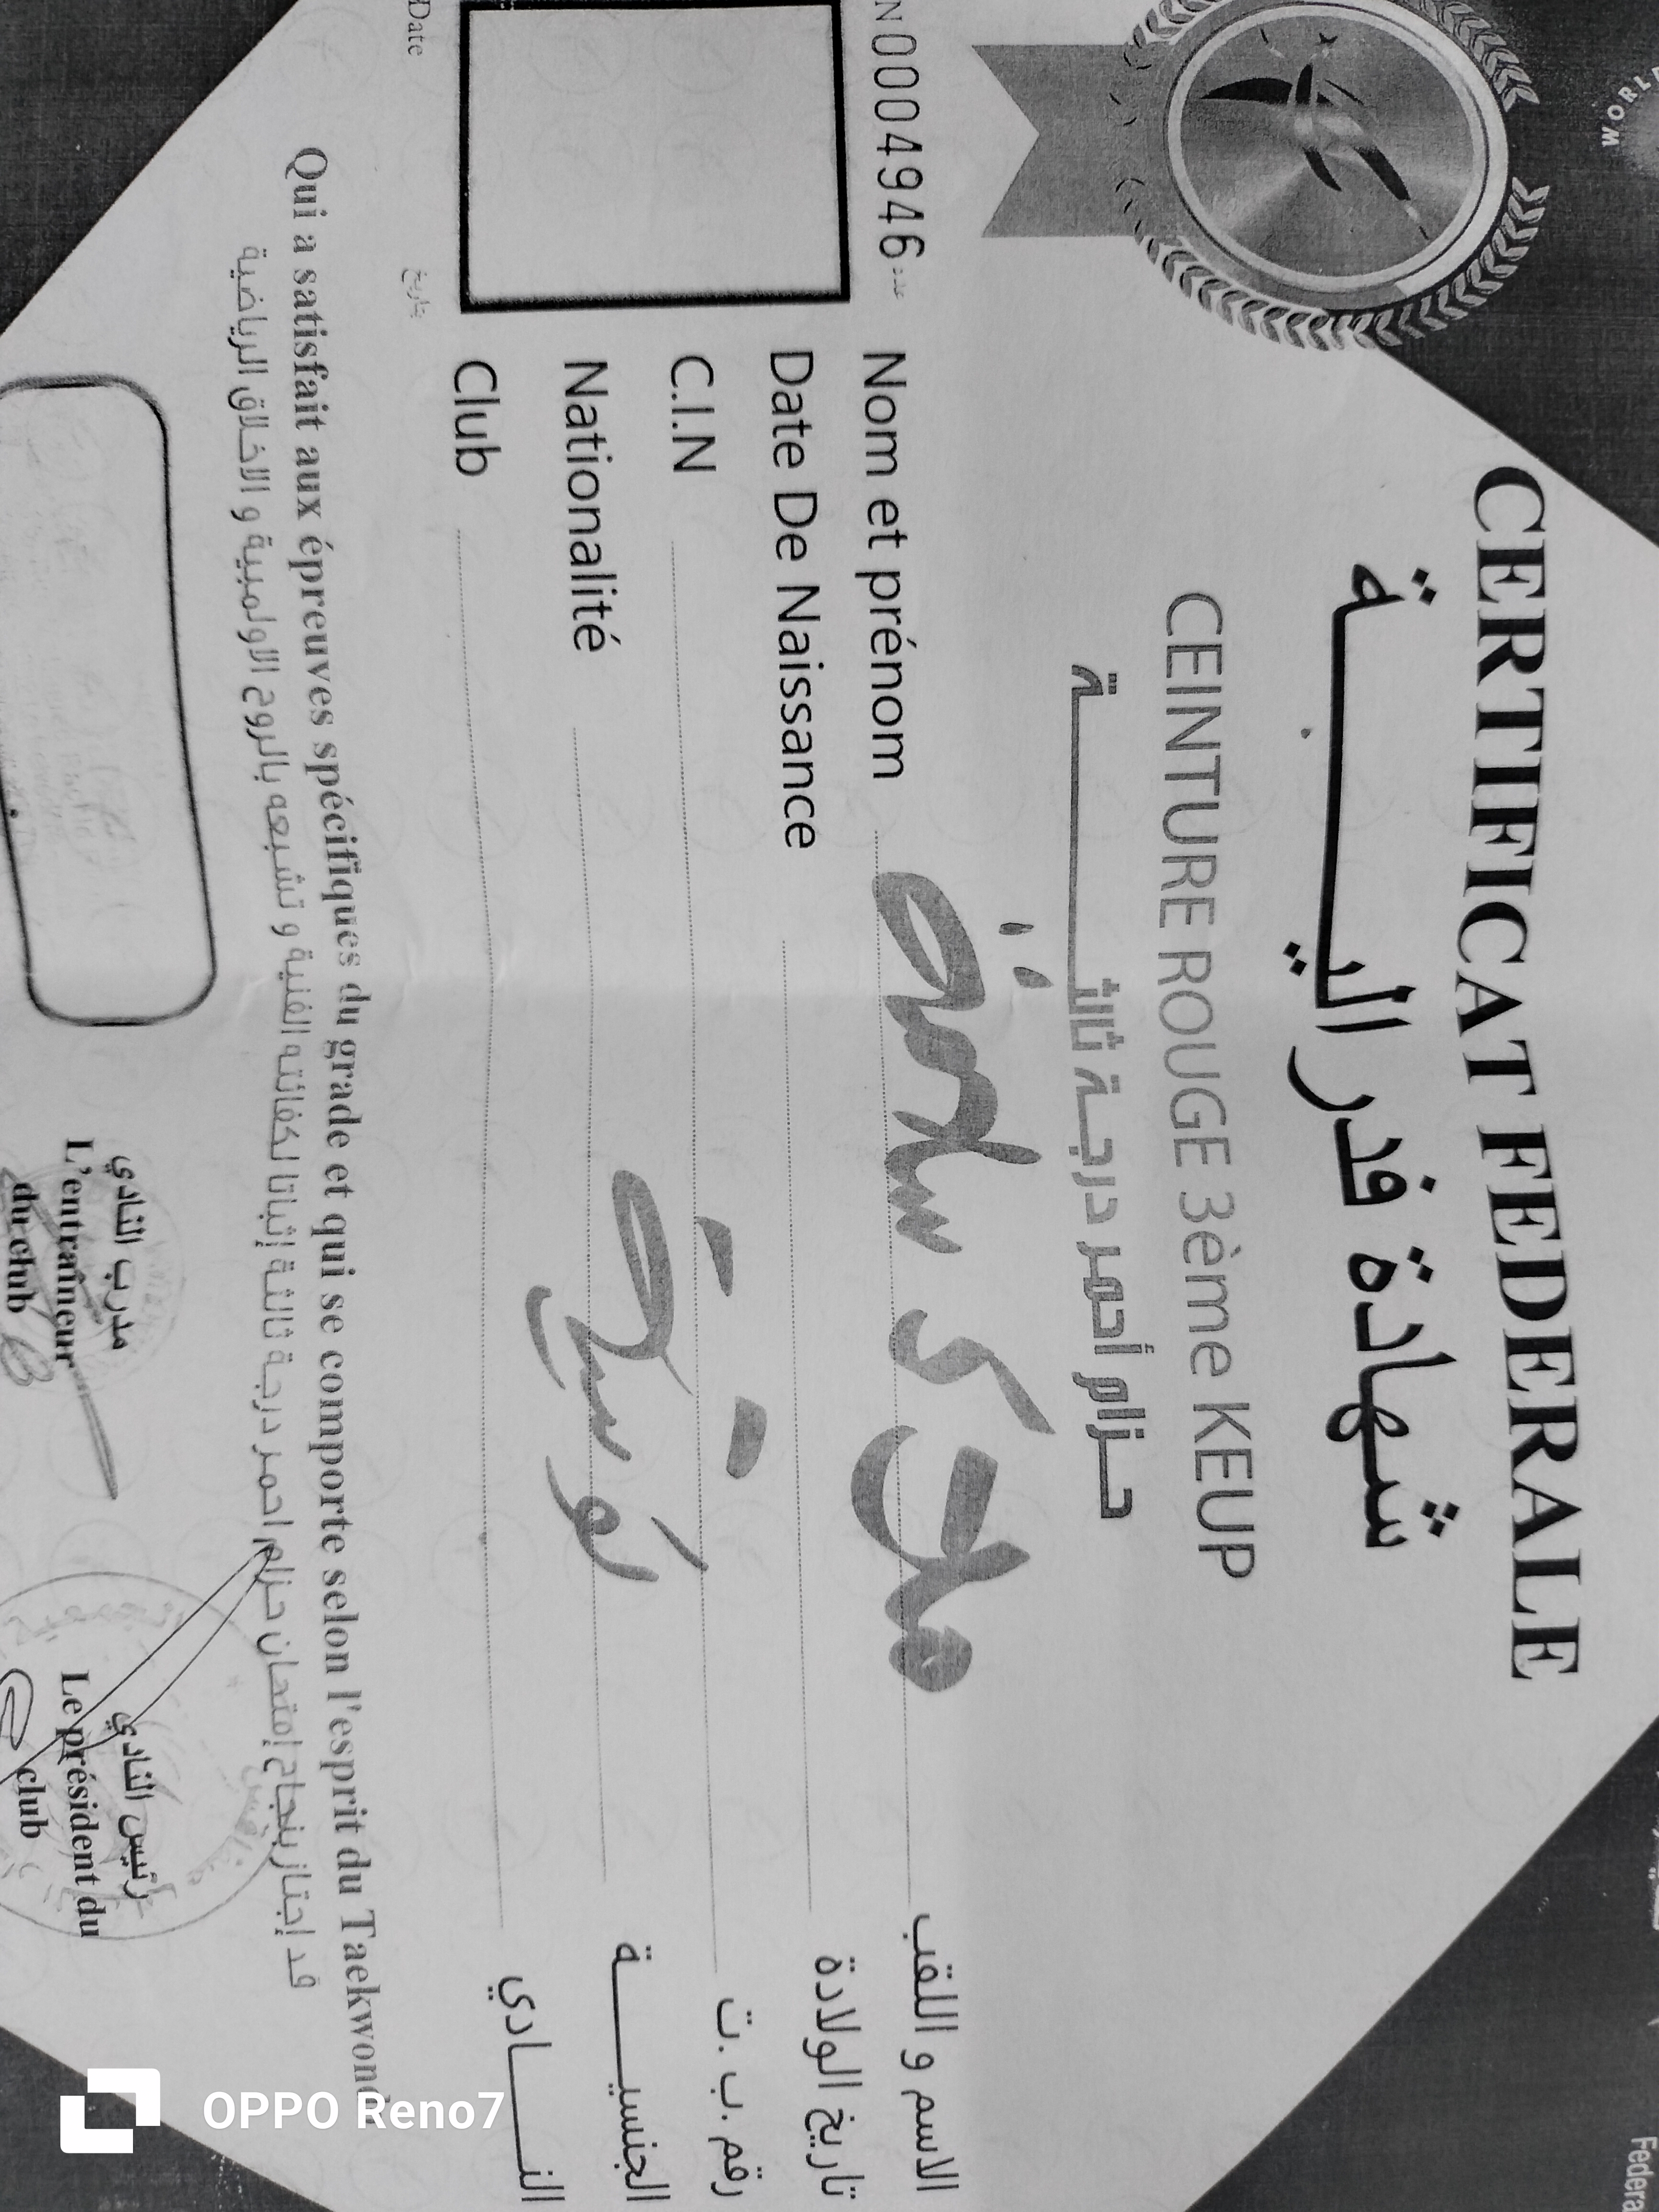 WORLD
CERTIFICAT FEDERALE
شهادة فدرالية
CEINTURE ROUGE 3ème KEUP
حزام أحمر درجة ثالثة
N0004946 عدد
Nom et prénom الاسم و اللقب
Date De Naissance تاريخ الولادة
C.I.N رقم .ب .ت
Nationalité الجنسية
تونسية
Club النادي
Date تاريخ
Qui a satisfait aux épreuves spécifiques du grade et qui se comporte selon l'esprit du Taekwondo
قد إجتاز بنجاح إمتحان حزام احمر درجة ثالثة إثباتا لكفائته الفنية و تشبعه بالروح الاولمبية و الاخلاق الرياضية
مدرب النادي
L'entraîneur
du club
رئيس النادي
Le président du
club
Federa
OPPO Reno7